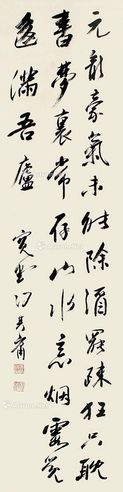 元龍豪氣未能除酒罷疎狂只耽
書夢裏常存山水意烟霞冪
遶滿吾廬